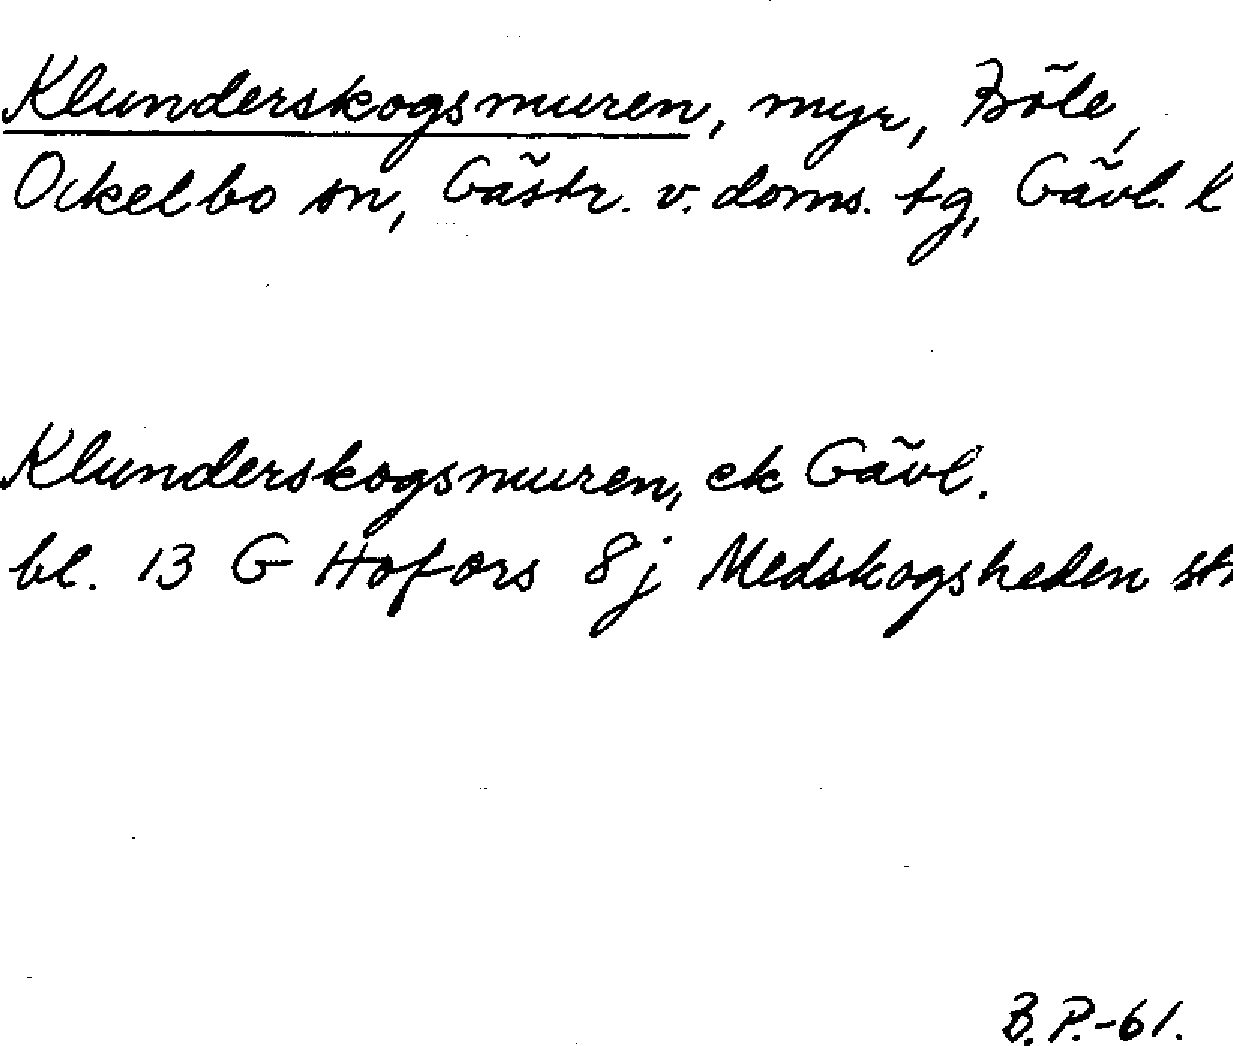 Klunderskogsmuren, myr, Böle,
Ockelbo sn, Gästr. v. doms. tg, Gävl. l
Klunderskogsmuren, ek Gävl.
bl. 13 G Hofors 8j Medskogsheden
B.P.-61.